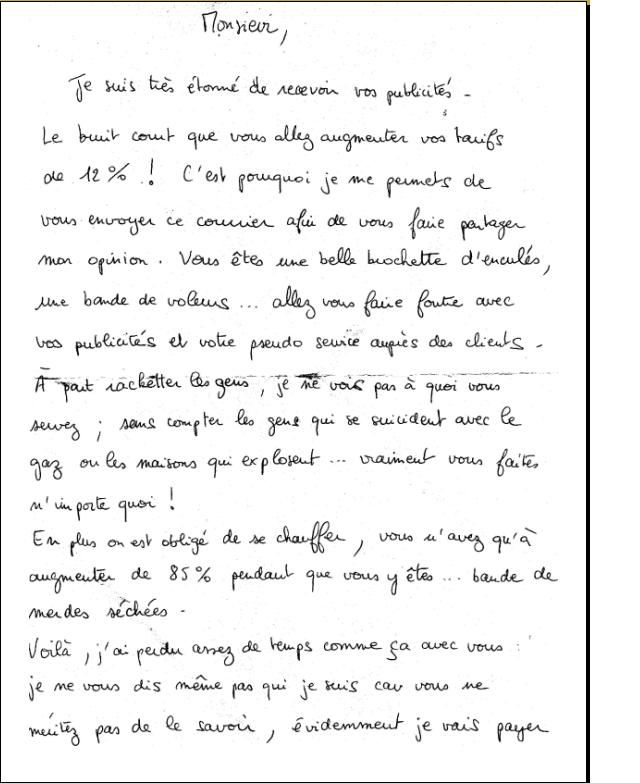 Monsieur,
Je suis très étonné de recevoir vos publicités -
Le bruit court que vous allez augmenter vos tarifs
de 12 % ! C'est pourquoi je me permets de
vous envoyer ce courrier afin de vous faire partager
mon opinion . Vous êtes une belle brochette d'enculés,
une bande de voleurs ... allez vous faire foutre avec
vos publicités et votre pseudo service auprès des clients -
À part racketter les gens , je ne vois pas à quoi vous
servez ; sans compter les gens qui se suicident avec le
gaz ou les maisons qui explosent ... vraiment vous faites
n'importe quoi !
En plus on est obligé de se chauffer , vous n'avez qu'à
augmenter de 85 % pendant que vous y êtes ... bande de
merdes séchées -
Voilà , j'ai perdu assez de temps comme ça avec vous :
je ne vous dis même pas qui je suis car vous ne
méritez pas de le savoir , évidemment je vais payer